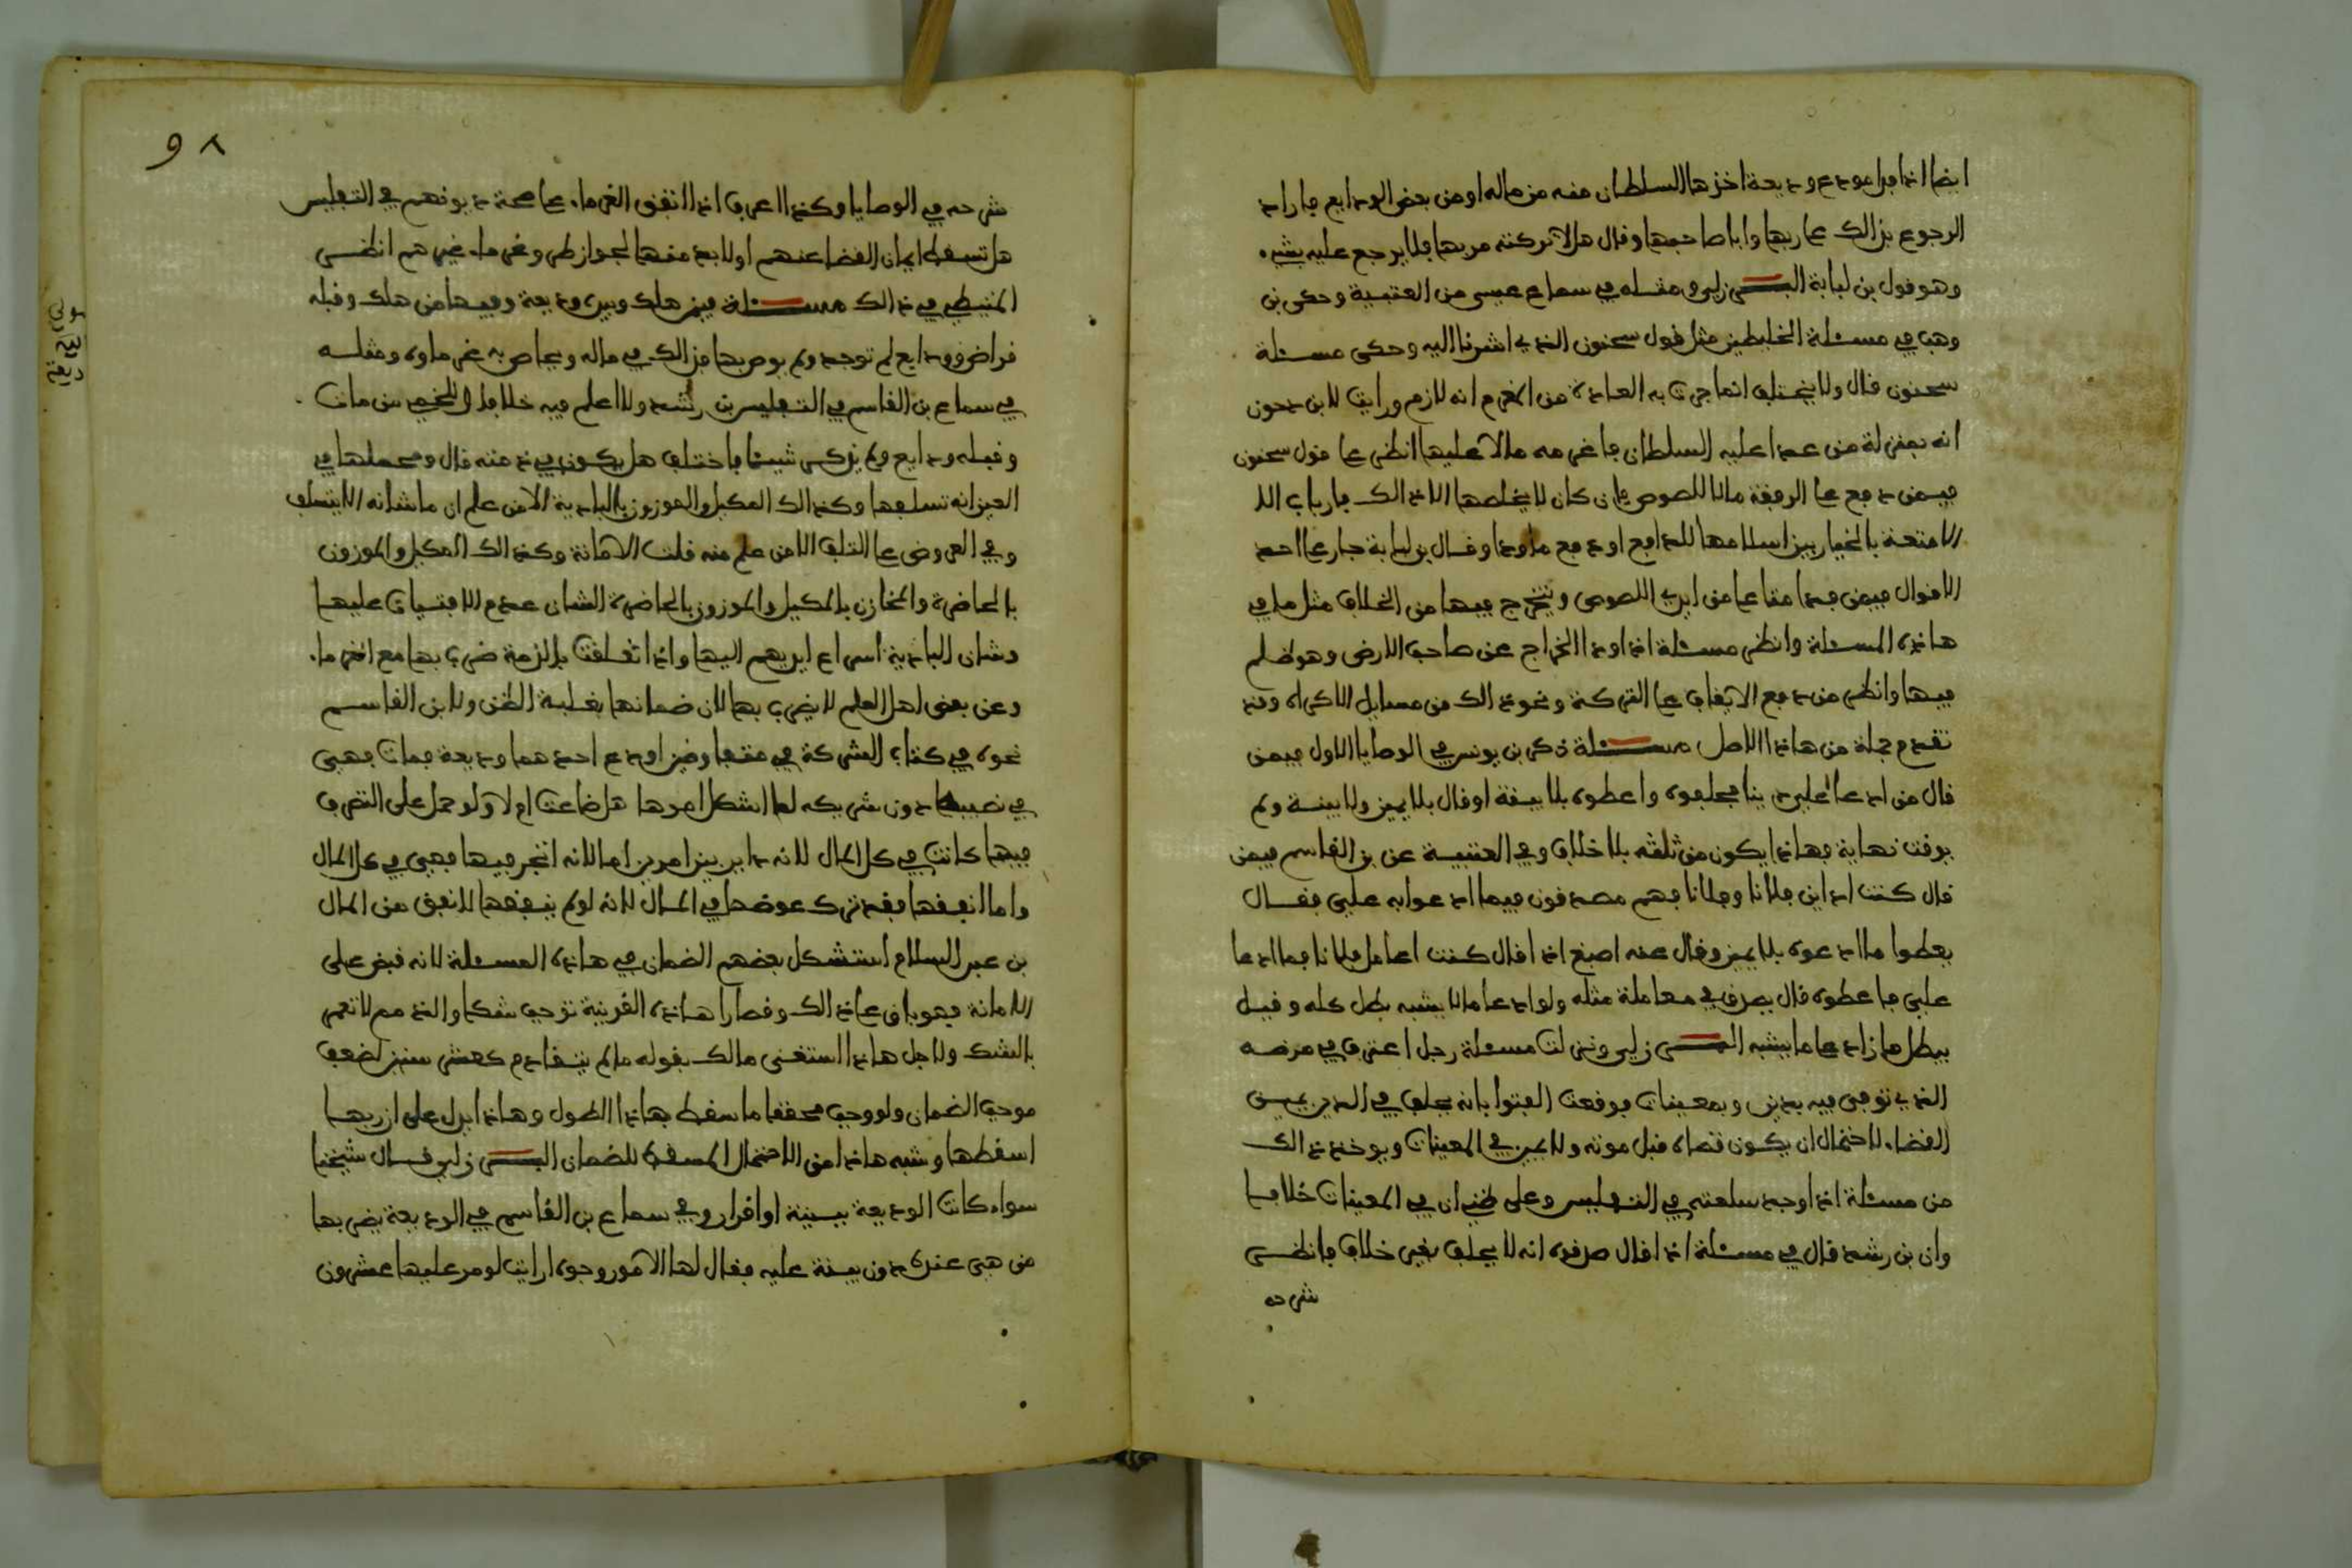 ايضا اذا فدا مودع وديعة اخذها السلطان منه من ماله او من بعض الودايع فاراد
الرجوع بذالك على ربها وابا صاحبها وقال هلا تركته مر بها فلا يرجع عليه بشيء
وهو قول بن لبابة البرزلي ومثله في سماع عيسى من العتبية وحكى بن
وهب في مسئلة الخليطين مثل قول سحنون الذي اشرنا اليه وحكى مسئلة
سحنون قال ولا يختلف انما جرت به العادة من المغرم انه لازم ورايت لابن دحون
انه بمنزلة من عدا عليه السلطان فاغرمه مالا عليها انظر على قول سحنون
فيمن دفع على الرفقة مالا للصوص فان كان لا يخلصها الا ذالك فارباب الا
الامتعة بالخيار بين اسلامها للدافع او دفع ما ودا وقال بن لبابة جار على احد
الاقوال فيمن فدا متاعا من ايدي اللصوص ويتخرج فيها من الخلاف مثل ما في
هاذه المسئلة وانظر مسئلة اذا ودا الخراج عن صاحب الارض وهو ظلم
فيها وانظر من دفع الانفاق على التركة ونحو ذالك من مسايل الاكراه وقد
تقدم جملة من هاذا الاصل مسئلة ذكر بن يونس في الوصايا الاول فيمن
قال من ادعا علي دينا فحلفوه واعطوه بلا بينة او قال بلا يمين ولا بينة ولم
يوقت نهاية فهاذا يكون من ثلثه بلا خلاف وفي العتبية عن بن القاسم فيمن
قال كنت اداين فلانا وفلانا فهم مصدقون فيما ادعوا به علي فقال
يعطوا ما ادعوه بلا يمين وقال عنه اصبغ اذا قال كنت اعامل فلانا فما ادعا
علي فاعطوه قال يصدق في معاملة مثله ولو ادعا ما لا يشبه بطل كله وقيل
يبطل ما زاد على ما يشبه البرزلي ونزلت مسئلة رجل اعترف في مرضه
الذي توفي فيه بدين وبمعينات فوقعت الفتوا بانه يحلف في الدين يمين
القضاء لاحتمال ان يكون قضاه قبل موته ولا يمين في المعينات ويوخذ ذالك
من مسئلة اذا وجد سلعته في التفليس وعلى ظني ان في المعينات خلافا
وان بن رشد قال في مسئلة اذا قال صدقوه انه لا يحلف بغير خلاف فانظر
شرحه
٩٨
شرحه في الوصايا وكذا اعرف اذا اتفق الغرماء على صحة ديونهم في التفليس
هل تسقط ايمان القضا عنهم او لا بد منها لجواز طرو غرماء غيرهم انظر
المتيطي في ذالك مسئلة فيمن هلك وبيده وديعة وفيها من هلك وقبله
قراض وودايع لم توجد ولم يوص بها فذالك في ماله ويحاص به غرماوه ومثله
في سماع بن القاسم في التفليس بن رشد ولا اعلم فيه خلافا واللخمي من مات
وقبله ودايع ولم يذكر شيئا فاختلف هل يكون في ذمته قال ومحملها في
العين انه تسلفها وكذالك المكيل والموزون بالبادية الا من علم ان ما شانه الا يتسلف
وفي العروض على التلف الا من علم منه قلت الامانة وكذالك المكيل والموزون
بالحاضرة والمخازن بالمكيل والموزون بالحاضرة الشان عدم الافتيات عليها
وشان البادية اسراع ايديهم اليها واذا تعلقت بالذمة ضرب بها مع الغرماء
وعن بعض اهل العلم لا يضرب بها لان ضمانها بغلبة الظن ولابن القاسم
نحوه في كتاب الشركة في متفاوضين اودع احدهما وديعة فمات فهي
في نصيبه دون شريكه لما اشكل امرها هل ضاعت ام لا ولو حمل على التصرف
فيها كانت في كل المال لانه داير بين امرين اما لانه اتجر فيها فهي في كل المال
واما انفقها فقد ترك عوضها في المال لانه لو لم ينفقها لانفق من المال
بن عبد السلام استشكل بعضهم الضمان في هاذه المسئلة لانه قبض على
الامانة فهو باق على ذالك وقصارا هاذه القرينة توجب شكا والذمم لا تعمر
بالشك ولاجل هاذا استغنى مالك بقوله ما لم يتقادم كعشر سنين لضعف
موجب الضمان ولو وجب محققا ما سقط بهاذا الطول وهاذا يدل على ان ربها
اسقطها وشبه هاذا من الاحتمال المسقط للضمان البرزلي قال شيخنا
سواء كانت الوديعة ببينة او اقرار وفي سماع بن القاسم في الوديعة يضر بها
من هي عنده دون بينة عليه فقال لها الامور وجوه ارايت لو مر عليها عشرون